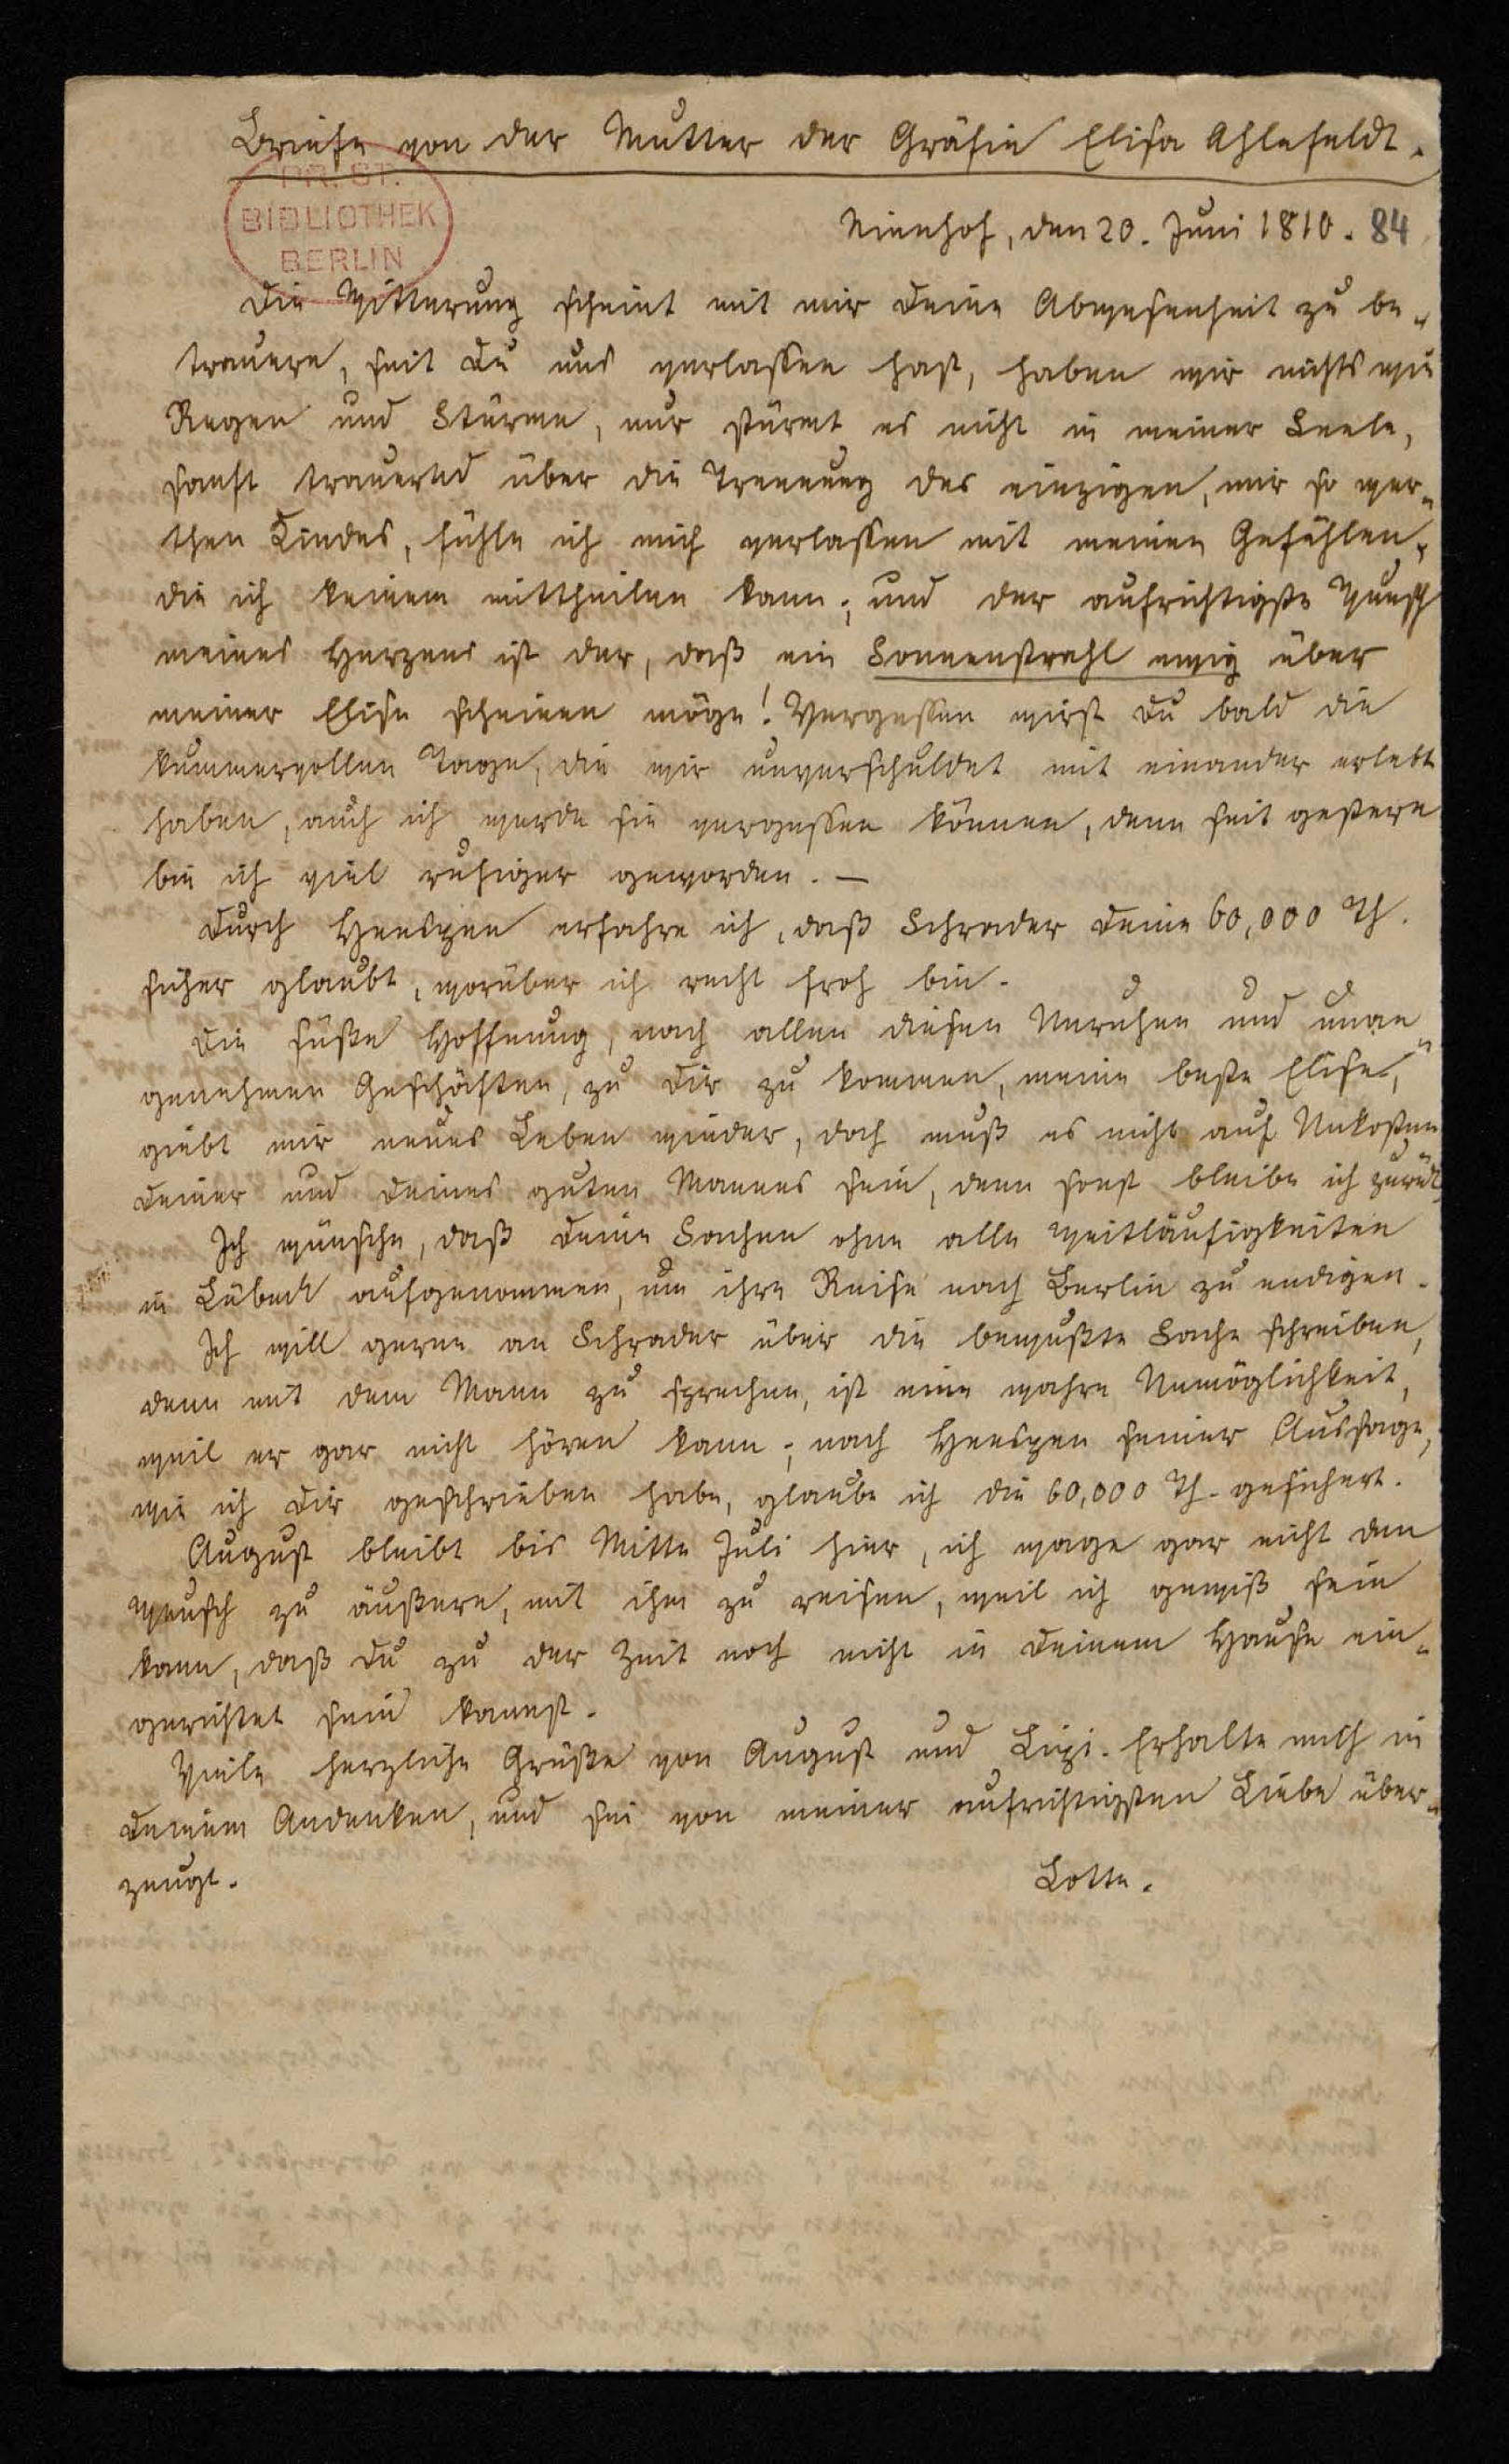 Briefe von der Mutter der Gräfin Elisa Ahlefeldt.
PR. ST.
BIBLIOTHEK
BERLIN
Nienhof, den 20. Juni 1810. 84
Die Witterung scheint mit mir Deine Abwesenheit zu be-
trauern, seit Du uns verlassen hast, haben wir nichts wie
Regen und Stürme, nur stürmt es nicht in meiner Seele,
sanft trauernd über die Trennung des einzigen, mir so wer-
then Kindes, fühle ich mich verlassen mit meinen Gefühlen,
die ich keinem mittheilen kann; und der aufrichtigste Wunsch
meines Herzens ist der, daß ein Sonnenstrahl ewig über
meiner Elise scheinen möge! Vergessen wirst Du bald die
kummervollen Tage, die wir unverschuldet mit einander erlebt
haben, auch ich werde sie vergessen können, denn seit gestern
bin ich viel ruhiger geworden. —
Durch Heespen erfahre ich, daß Schrader Deine 60,000 Th.
sicher glaubt, worüber ich recht froh bin.
Die süße Hoffnung, nach allen diesen Unruhen und unan-
genehmen Geschäften, zu Dir zu kommen, meine beste Elise,
giebt mir neues Leben wieder, doch muß es nicht auf Unkosten
Deiner und Deines guten Mannes sein, denn sonst bleibe ich zurück.
Ich wünsche, daß Deine Sachen ohne alle Weitläufigkeiten
in Lübeck aufgenommen, um ihre Reise nach Berlin zu endigen.
Ich will gerne an Schrader über die bewußte Sache schreiben,
denn mit dem Mann zu sprechen, ist eine wahre Unmöglichkeit,
weil er gar nicht hören kann; nach Heespen seiner Aussage,
wie ich Dir geschrieben habe, glaube ich die 60,000 Th. gesichert.
August bleibt bis Mitte Juli hier, ich wage gar nicht den
Wunsch zu äußern, mit ihm zu reisen, weil ich gewiß sein
kann, daß Du zu der Zeit noch nicht in Deinem Hause ein-
gerichtet sein kannst.
Viele herzliche Grüße von August und Lizi. Erhalte mich in
Deinem Andenken, und sei von meiner aufrichtigsten Liebe über-
zeugt.
Lotte.